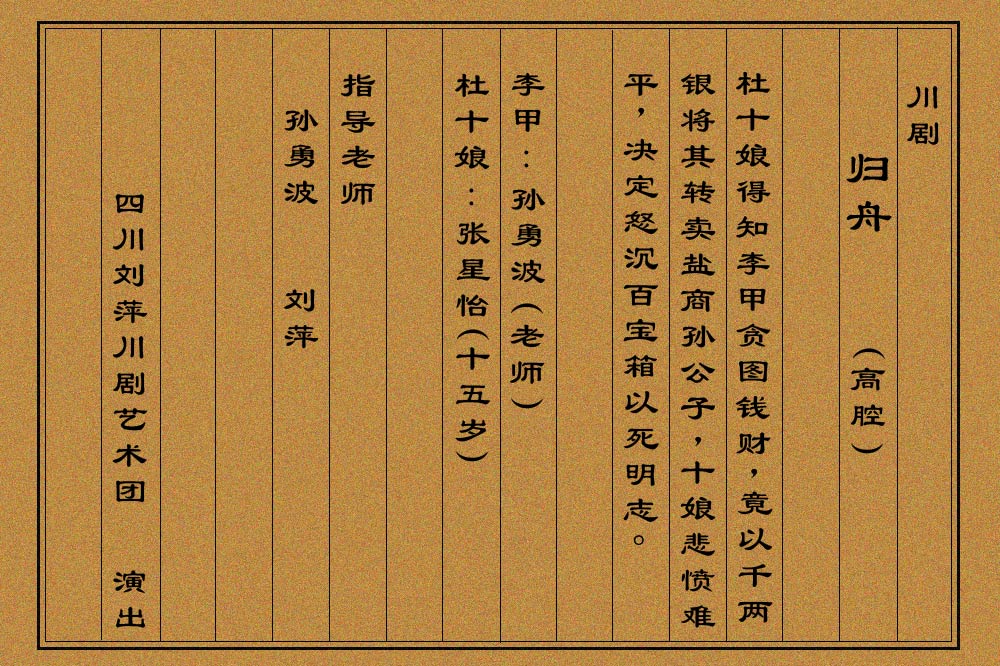 川剧
归舟 （高腔）
杜十娘得知李甲贪图钱财，竟以千两
银将其转卖盐商孙公子，十娘悲愤难
平，决定怒沉百宝箱以死明志。
李甲：孙勇波（老师）
杜十娘：张星怡（十五岁）
指导老师
孙勇波 刘萍
四川刘萍川剧艺术团 演出